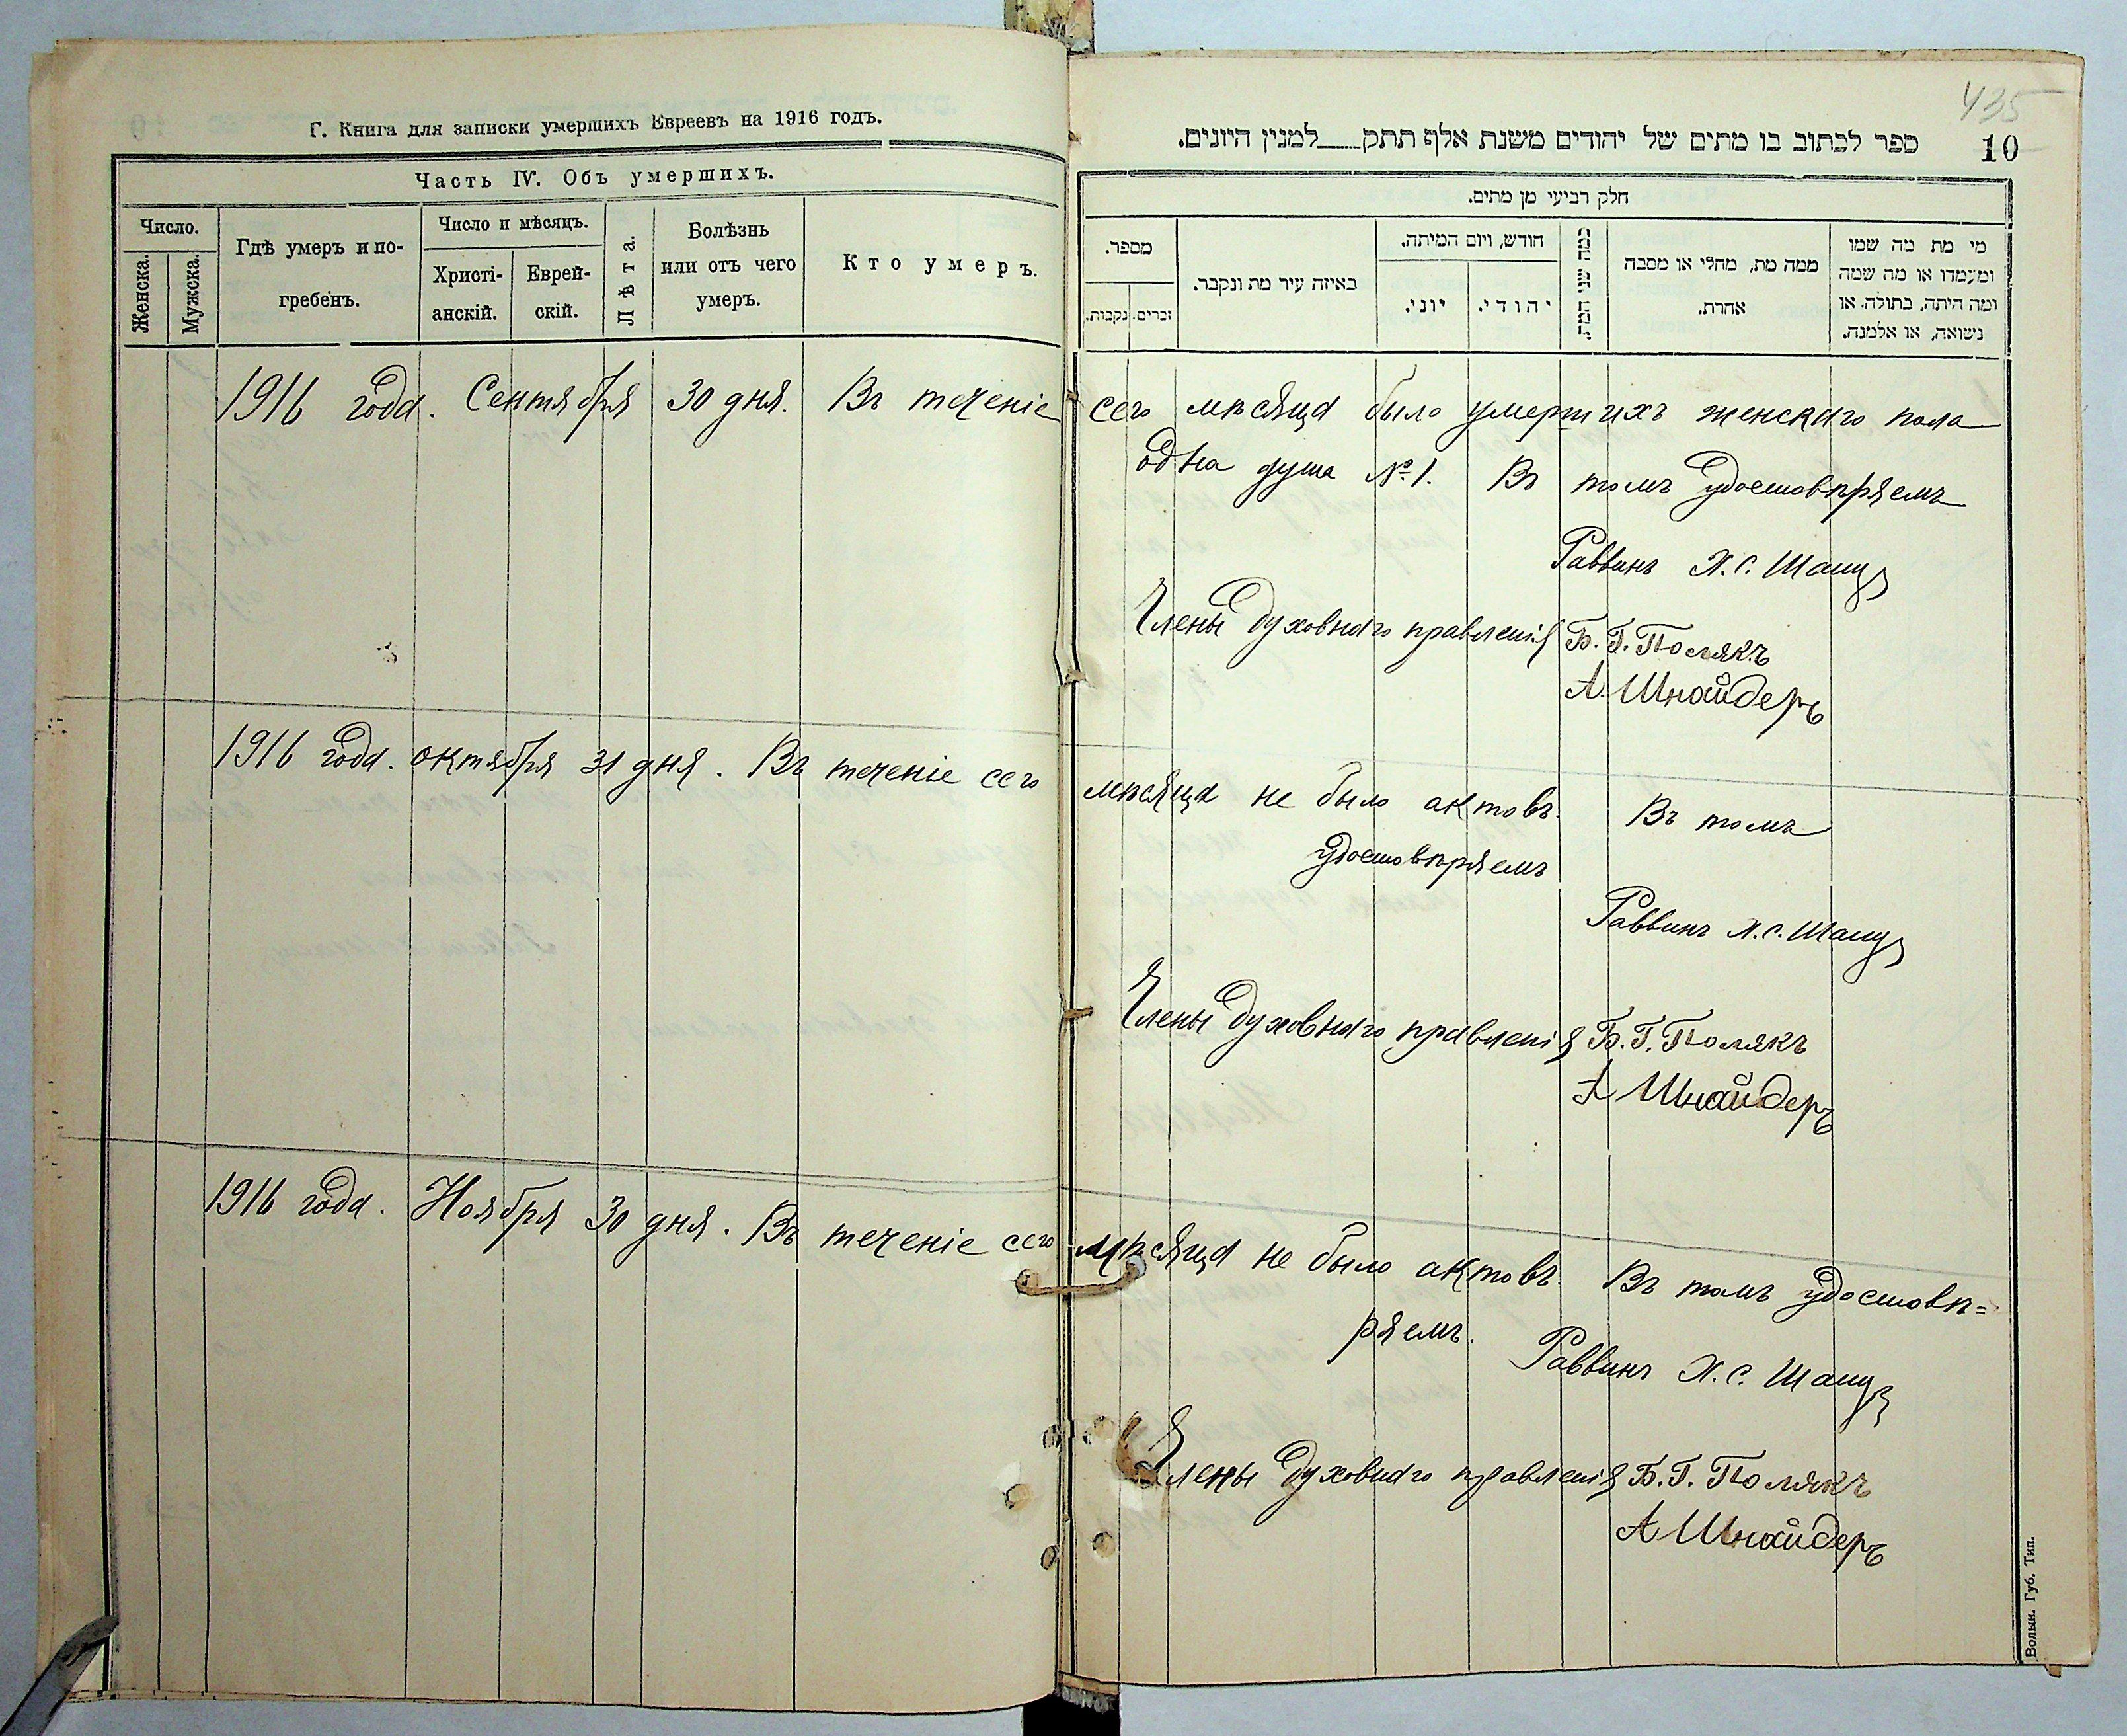 Г. Книга для записки умершихъ Евреевъ на 1916 годъ.
Часть IV. Объ умершихъ.
Число.
Женска.
Мужска.
Гдѣ умеръ и по-
гребенъ.
Число и мѣсяцъ.
Христі-
анскій.
Еврей-
скій.
Лѣта.
Болѣзнь
или отъ чего
умеръ.
Кто умеръ.
435
10
ספר לכתוב בו מתים של יהודים משנת אלף תתק___למנין היונים.
חלק רביעי מן מתים.
מספר.
זכרים.
נקבות.
באיזה עיר מת ונקבר.
חודש, ויום המיתה.
יוני.
יהודי.
כמה שני המת.
ממה מת, מחלי או מסבה
אחרת.
מי מת מה שמו
ומעמדו או מה שמה
ומה היתה, בתולה, או
נשואה, או אלמנה.
1916 года. Сентября 30 дня. Въ теченіе сего мѣсяца было умершихъ женскаго пола
одна душа №1. Въ томъ удостовѣряемъ
Раввинъ Х.С. Шапиро
Члены духовнаго правленія Б.Г. Полякъ
А. Шнайдеръ
1916 года. октября 31 дня. Въ теченіе сего мѣсяца не было актовъ. Въ томъ
удостовѣряемъ
Раввинъ Х.С.
Члены духовнаго правленія Б.Г. Полякъ
А Шнайдеръ
1916 года. Ноября 30 дня. Въ теченіе сего мѣсяца не было актовъ. Въ томъ удостовѣ=
ряемъ.
Раввинъ Х.С.
Члены духовнаго правленія Б.Г. Полякъ
А Шнайдеръ
Волын. Губ. Тип.